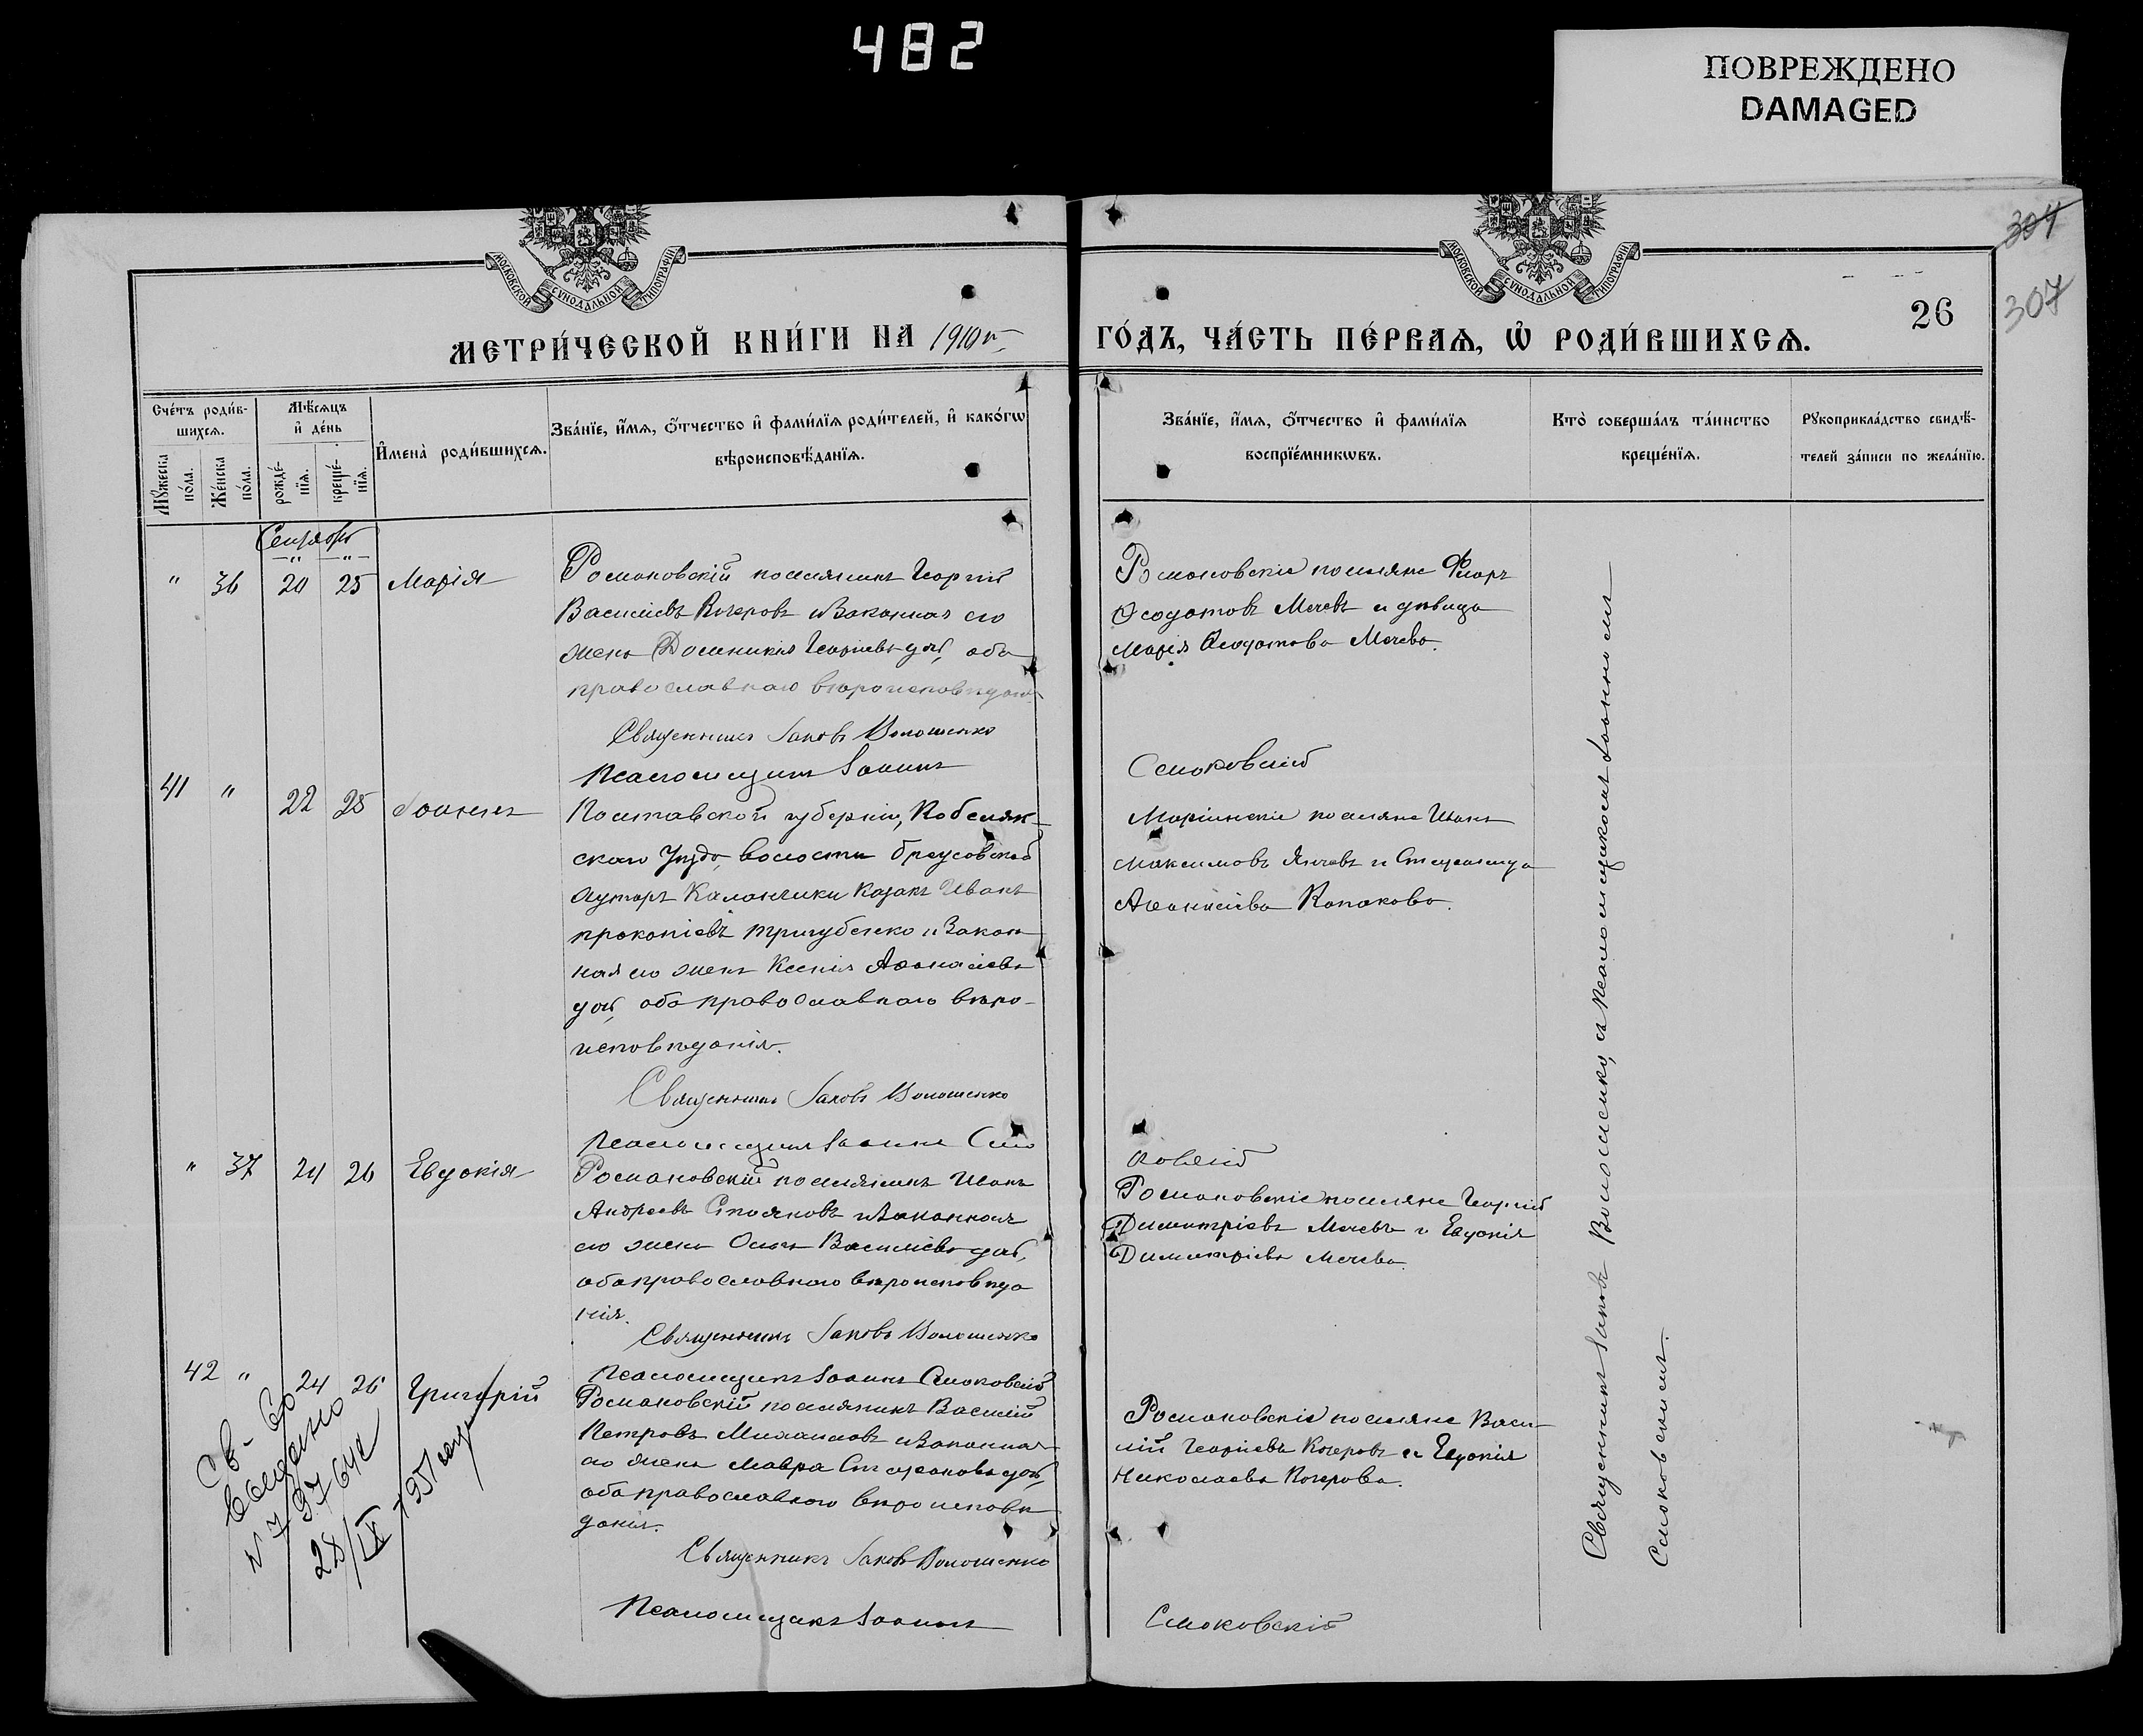 482
ПОВРЕЖДЕНО
DAMAGED
МОСКОВСКОЙ СѴНОДАЛЬНОЙ ТИПОГРАФІИ
МОСКОВСКОЙ СѴНОДАЛЬНОЙ ТИПОГРАФІИ
304
307
26
МЕТРИ́ЧЕСКОЙ КНИ́ГИ НА 1910 г.
ГО́ДЪ, ЧА́СТЬ ПЕ́РВАѦ, Ѡ҆ РОДИ́ВШИХСѦ.
Сче́тъ роди́в-
шихсѧ.
Мꙋ́жеска
по́ла.
Же́нска
по́ла.
Мѣ́сѧцъ
и҆ де́нь
рожде́-
нїѧ.
креще́-
нїѧ.
И҆мена̀ роди́вшихсѧ.
Зва́нїе, и҆́мѧ, ѻ҆́тчество и҆ фами́лїѧ роди́телей, и҆ како́гѡ
вѣроисповѣ́данїѧ.
Зва́нїе, и҆́мѧ, ѻ҆́тчество и҆ фами́лїѧ
воспрїе́мникѡвъ.
Кто̀ соверша́лъ та́инство
креще́нїѧ.
Рꙋкоприкла́дство свидѣ́-
телей за́писи по жела́нїю.
Сентябрь
" 36 20 25 Марія
Романовскій поселянинъ Георгій
Василіевъ Кочеровъ и законная его
жена Домникія Георгіева, оба
православнаго вѣроисповѣданія
Священникъ Іаковъ Волошенко
Псаломщикъ Іоаннъ
Романовскіе поселяне Флоръ
Ѳеодотовъ Мечевъ и дѣвица
Марія Ѳеодотова Мечева.
Смоковскій
41 " 22 25 Іоаннъ
Полтавской губерніи, Кобеляк-
скаго уѣзда, волости Бреусовской
хуторъ Каланчики казакъ Иванъ
Прокопіевъ Тригубенко и закон-
ная его жена Ксенія Аѳанасіева
оба православнаго вѣро-
исповѣданія.
Священникъ Іаковъ Волошенко
Псаломщикъ Іоаннъ Смо
Маріинскіе поселяне Иванъ
Максимовъ и Стефанида
Аѳанасіева Капакова.
ковскій
" 37 24 26 Евдокія
Романовскій поселянинъ Иванъ
Андреевъ Стояновъ и законная
его жена Ольга Василіева,
оба православнаго вѣроисповѣда
нія.
Священникъ Іаковъ Волошенко
Псаломщикъ Іоаннъ Смоковскій
Романовскіе поселяне Георгій
Димитріевъ Мечевъ и Евдокія
Димитріева Мечева.
42 " 24 26 Григорій
Романовскій поселянинъ Василій
Петровъ Михайловъ и законная
его жена Мавра Стефанова,
оба православнаго вѣроисповѣ
данія.
Священникъ Іаковъ Волошенко
Псаломщикъ Іоаннъ
Романовскіе поселяне Васи-
лій Георгіевъ Кочеровъ и Евдокія
Николаева Кочерова.
Смоковскій
Св-во
выдано
28/IX 1951 года
Священникъ Іаковъ Волошенко, съ псаломщикомъ Іоанномъ
Смоковскимъ.